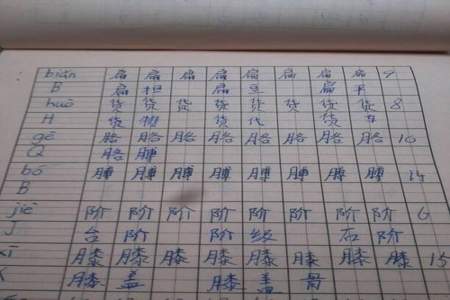 biǎn 扁 扁 扁 扁 扁 扁 扁 扁 9
B 扁担 扁豆 扁平
huò 货 货 货 货 货 货 货 货 8
H 货 货代 货车
gē 胳 胳 胳 胳 胳 胳 胳 胳 10
Q 胳膊
bó 膊 膊 膊 膊 膊 膊 膊 膊 14
B
jiē 阶 阶 阶 阶 阶 阶 阶 阶 6
J 台阶 阶级 石阶
xī 膝 膝 膝 膝 膝 膝 膝 膝 15
X 膝盖 膝盖骨